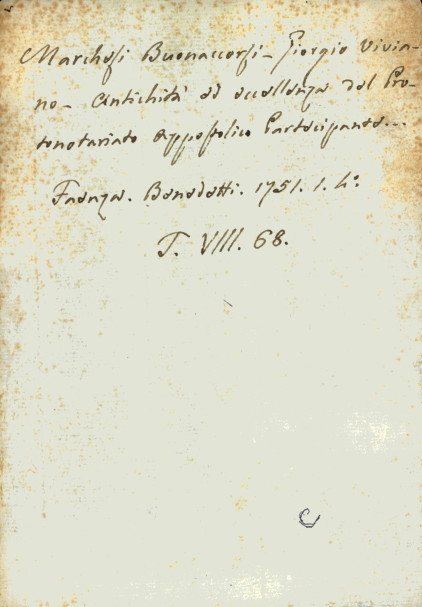 Marchesi Buonaccorsi - Giorgio Vivia-
no - Antichità ed eccellenza del Pro-
tonotariato Appostolico Partecipante...
Faenza. Benedetti. 1751. 1. 4°.
T. VIII. 68.